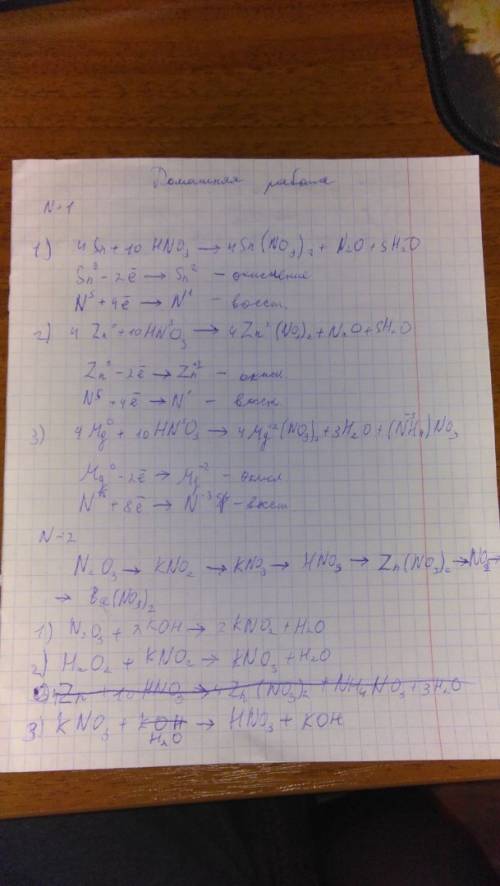 Домашняя работа
N-1
1) 4Sn + 10 HNO3 → 4Sn(NO3)2 + N2O + 5H2O
Sn⁰ - 2ē → Sn² - окисление
N⁵ + 4ē → N¹ - восст.
2) 4 Zn⁰ + 10HN⁵O3 → 4Zn²(NO3)2 + N2O + 5H2O
Zn⁰ - 2ē → Zn⁺² - окисл
N⁵ + 4ē → N¹ - восст
3) 4Mg⁰ + 10HN⁵O3 → 4Mg⁺²(NO3)2 + 3H2O + (N⁻³H4)NO3
Mg⁰ - 2ē → Mg⁺² - окисл
N⁵ + 8ē → N⁻³ - восст
N-2
N2O3 → KNO2 → KNO3 → HNO3 → Zn(NO3)2 → NO2 →
→ Ba(NO3)2
1) N2O3 + 2KOH → 2KNO2 + H2O
2) H2O2 + KNO2 → KNO3 + H2O
3) 4Zn + 10 HNO3 → 4Zn(NO3)2 + NH4NO3 + 3H2O
3) KNO3 + KOH → HNO3 + KOH
H2O